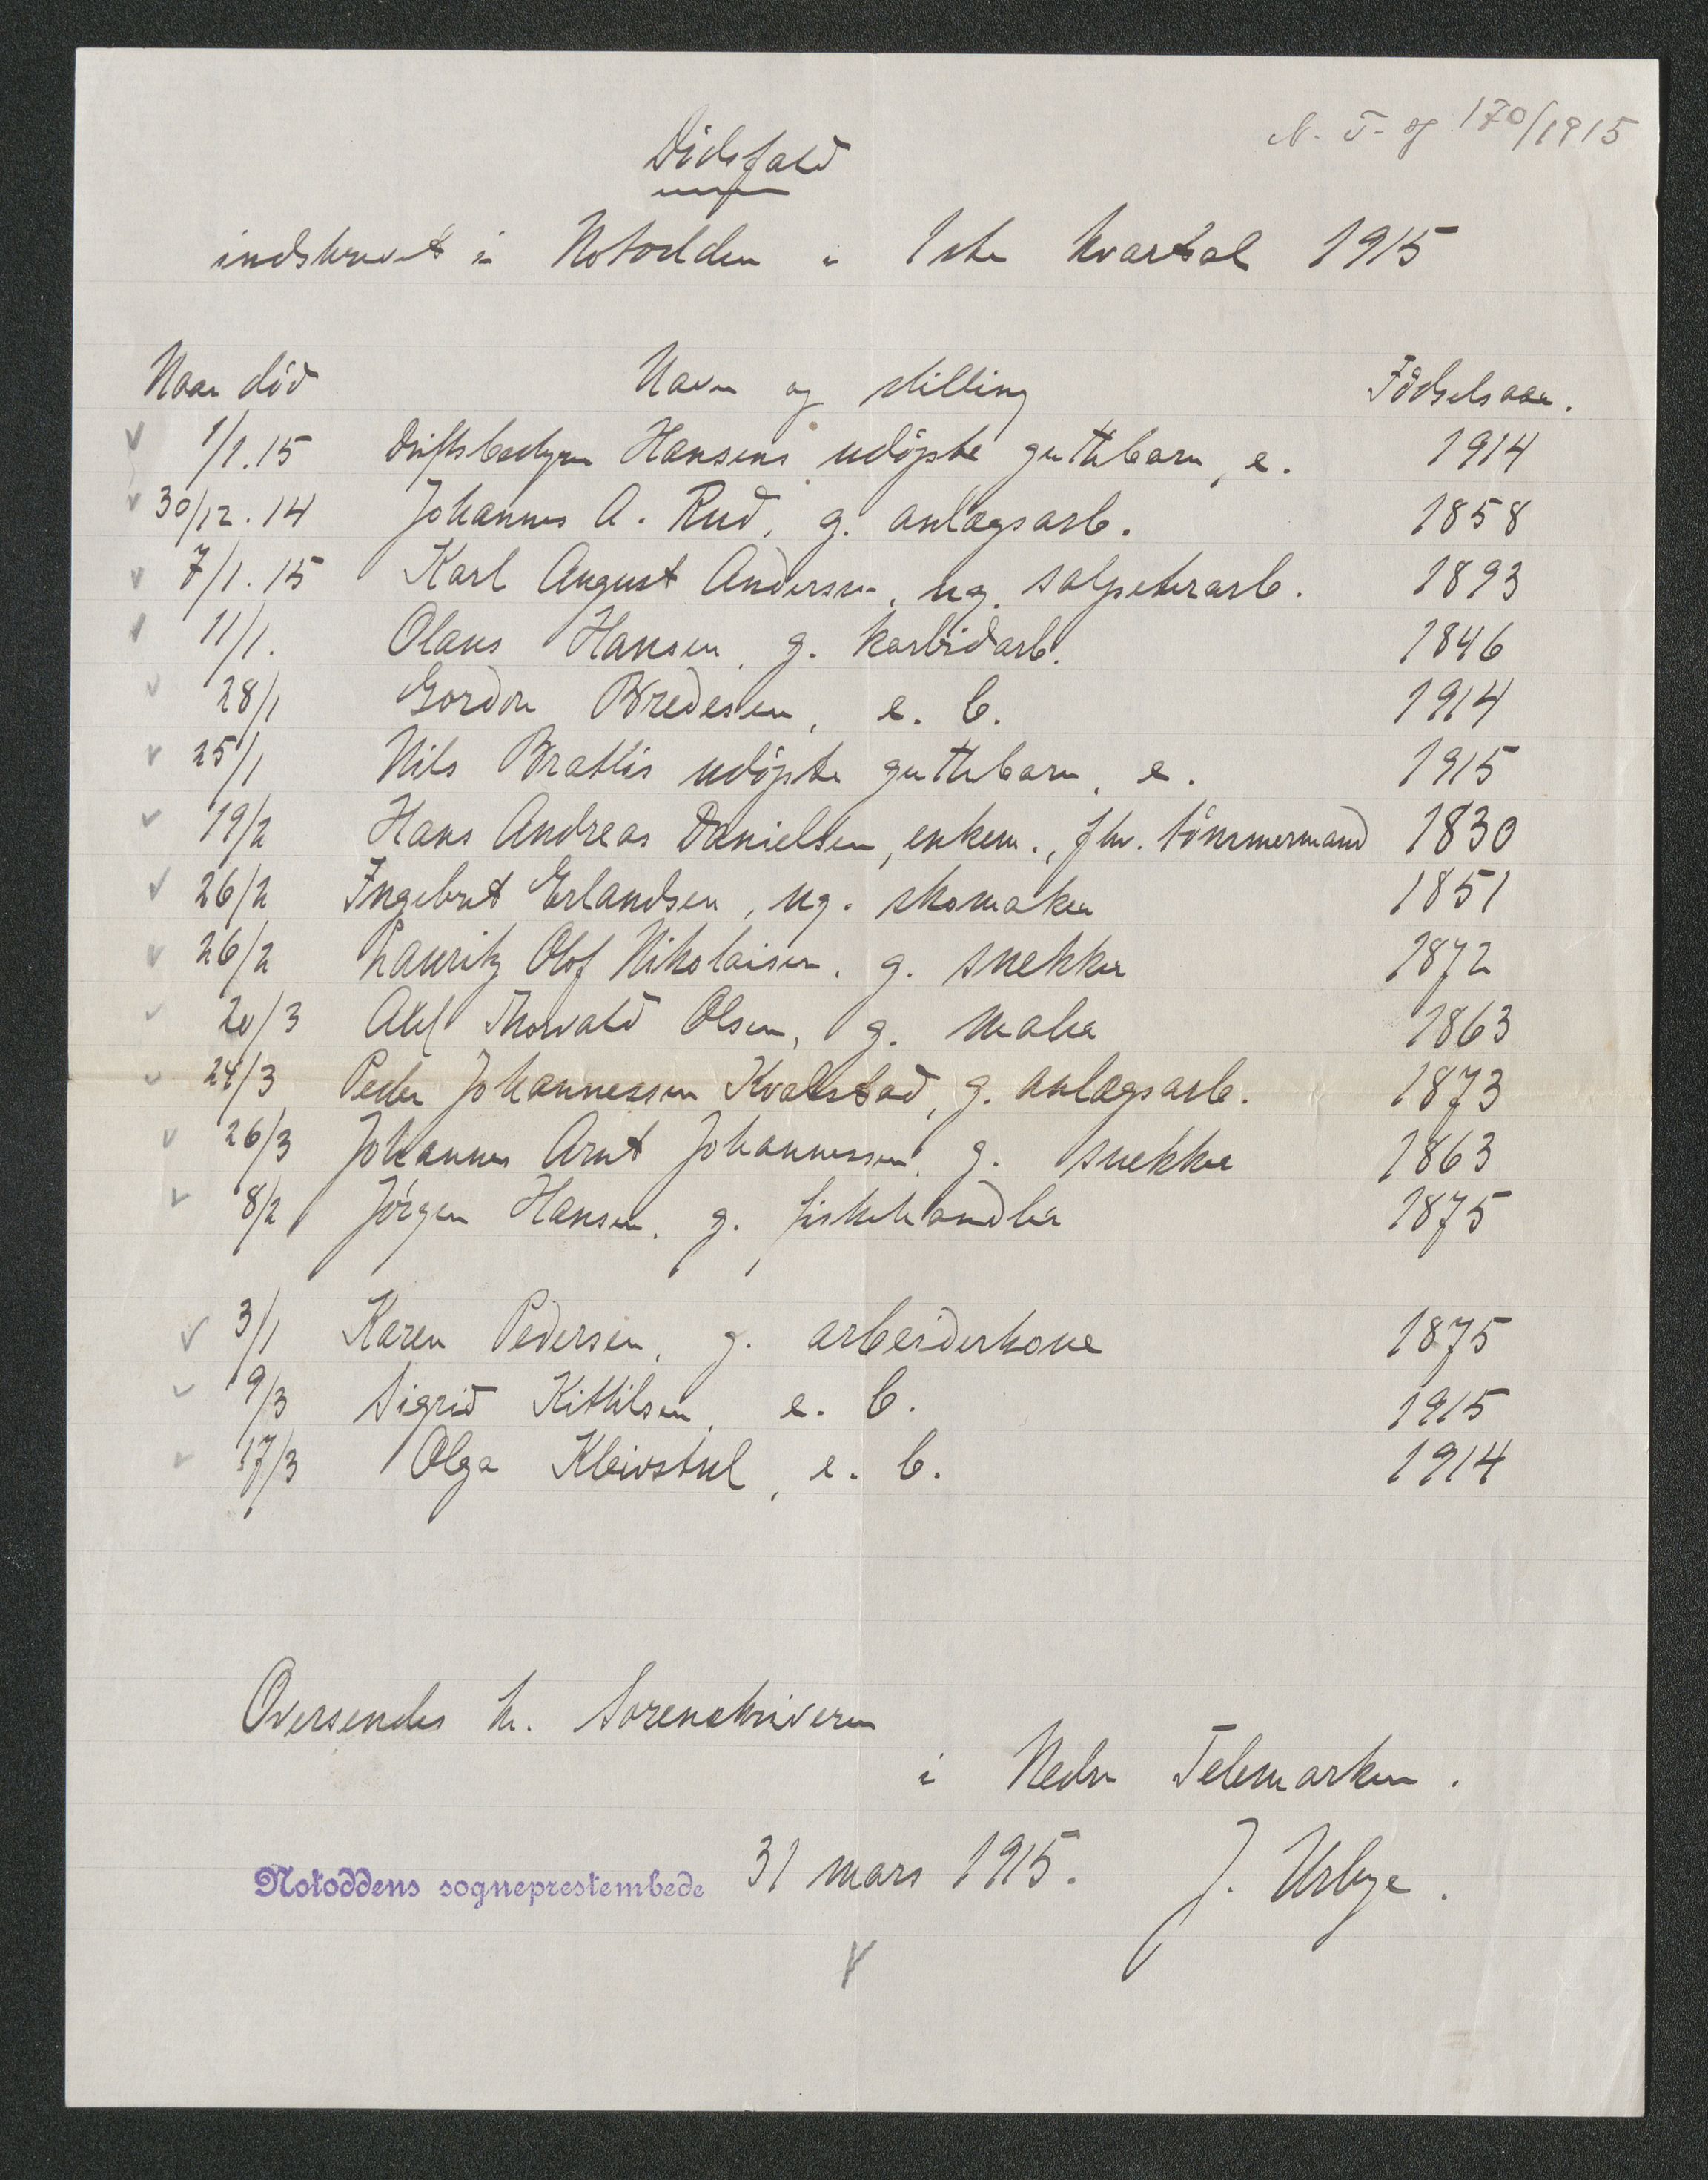 N. T. og 170/1915
Dødsfald
indskrevet i Notodden i 1ste kvartal 1915
Naar død Navn og stilling Fødselsaar.
1/1.15 Driftsbestyrer Hansens udøpte guttebarn, e. 1914
30/12.14 Johannes A. Rud, g. anlægsarb. 1858
7/1.15 Karl August Andersen, ug. salpeterarb. 1893
11/1. Olaus Hansen, g. karbidarb. 1846
28/1 Gordon Bredesen, e. b. 1914
25/1 Nils Bratlis udøpte guttebarn, e. 1915
19/2 Hans Andreas Danielsen, enkem., fhv. tømmermand 1830
26/2 Ingebret Erlandsen, ug. skomaker 1851
26/2 Lauritz Olof Nikolaisen, g. snekker 1872
20/3 Axel Thorvald Olsen, g. maler 1863
24/3 Peder Johannessen Kvalstad, g. anlægsarb. 1873
26/3 Johannes Arnt Johannessen, g. snekker 1863
8/2 Jørgen Hansen, g. fiskehandler 1875
3/1 Karen Pedersen, g. arbeiderkone 1875
9/3 Sigrid Kittilsen, e. b. 1915
17/3 Olga Kleivstul, e. b. 1914
Oversendes hr. Sorenskriveren
i Nedre Telemarken.
Notoddens sogneprestembede 31 mars 1915. J. Urbye.